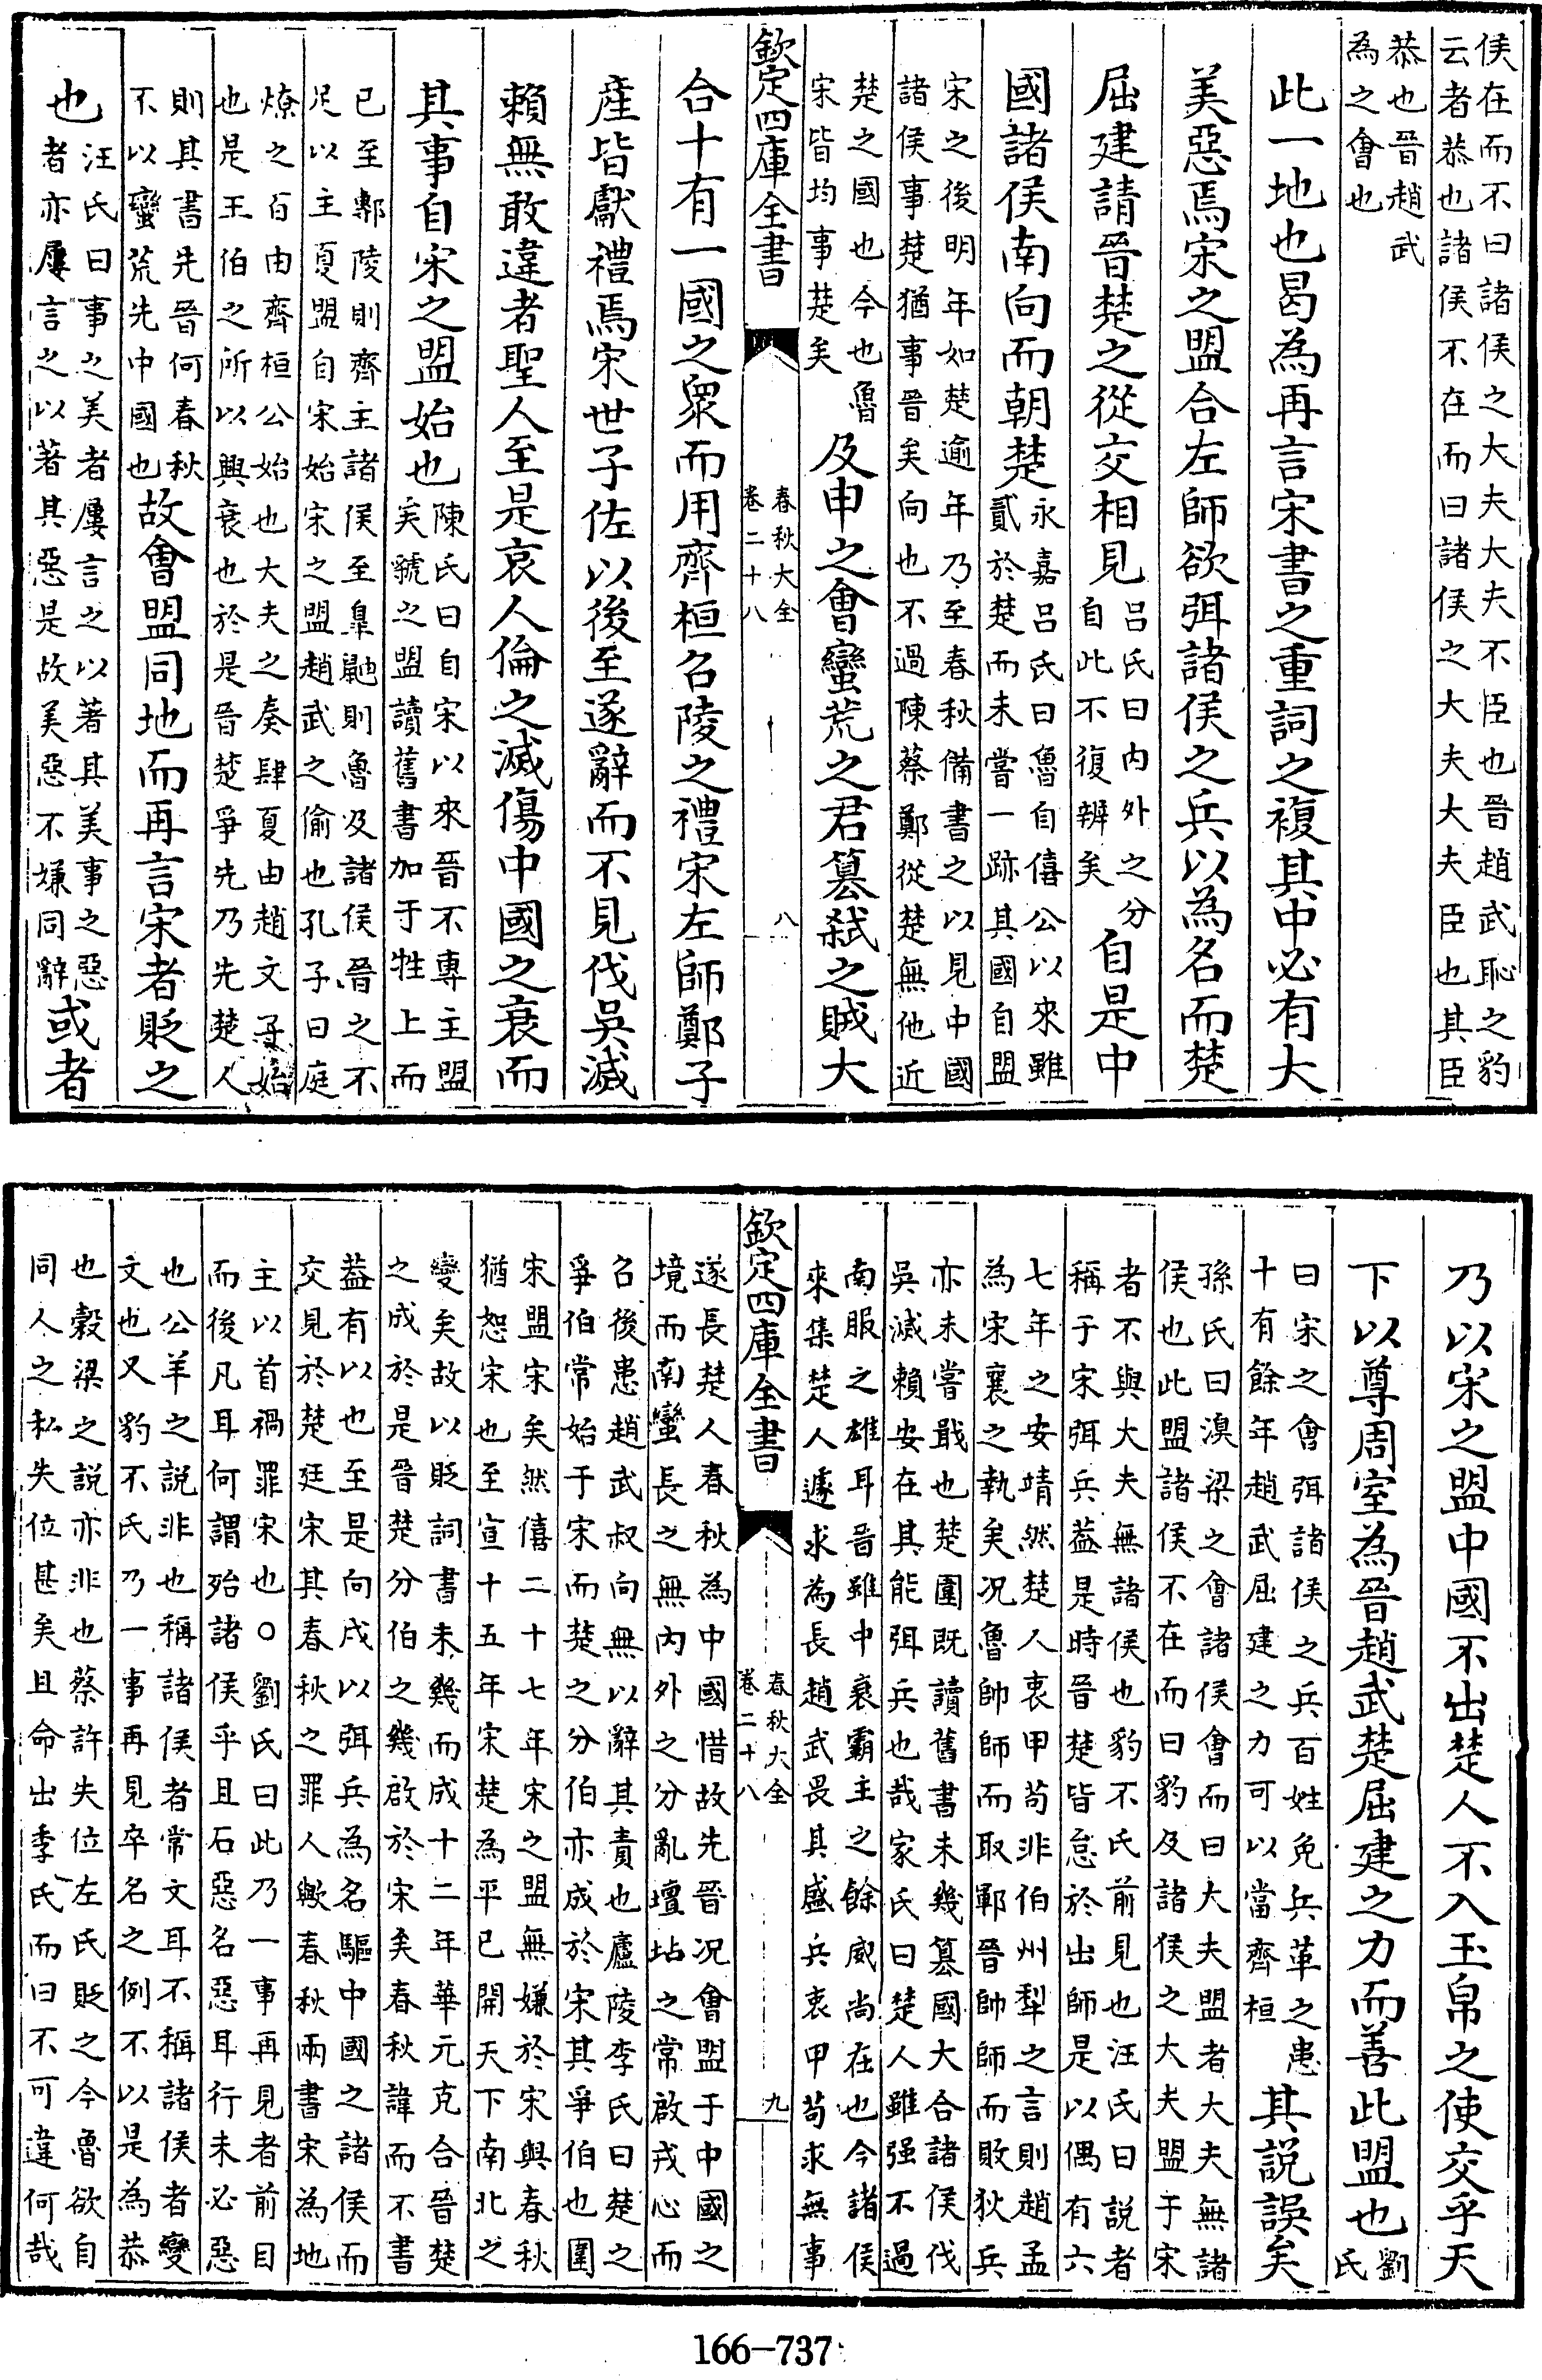 侯在而不曰諸侯之大夫大夫不臣也晉趙武恥之豹
云者恭也諸侯不在而曰諸侯之大夫大夫臣也其臣
恭也晉趙武
為之會也
此一地也曷為再言宋書之重詞之複其中必有大
美惡焉宋之盟合左師欲弭諸侯之兵以為名而楚
屈建請晉楚之從交相見
呂氏曰內外之分
自此不復辨矣
自是中
國諸侯南向而朝楚
永嘉呂氏曰魯自僖公以來雖
貳於楚而未嘗一跡其國自盟
宋之後明年如楚逾年乃至春秋備書之以見中國
諸侯事楚猶事晉矣向也不過陳蔡鄭從楚無他近
楚之國也今也魯
宋皆均事楚矣
及申之會蠻荒之君篡弒之賊大
欽定四庫全書
春秋大全
卷二十八
八
合十有一國之衆而用齊桓召陵之禮宋左師鄭子
產皆獻禮焉宋世子佐以後至遂辭而不見伐吳滅
賴無敢違者聖人至是哀人倫之滅傷中國之衰而
其事自宋之盟始也
陳氏曰自宋以來晉不專主盟
矣虢之盟讀舊書加于牲上而
已至鄟陵則齊主諸侯至臯鼬則魯及諸侯晉之不
足以主夏盟自宋始宋之盟趙武之偷也孔子曰庭
燎之百由齊桓公始也大夫之奏肆夏由趙文子始
也是王伯之所以興衰也於是晉楚爭先乃先楚人
則其書先晉何春秋
不以蠻荒先中國也
故會盟同地而再言宋者貶之
也
汪氏曰事之美者屢言之以著其美事之惡
者亦屢言之以著其惡是故美惡不嫌同辭
或者
乃以宋之盟中國不出楚人不入玉帛之使交乎天
下以尊周室為晉趙武楚屈建之力而善此盟也
劉
氏
曰宋之會弭諸侯之兵百姓免兵革之患
十有餘年趙武屈建之力可以當齊桓
其説誤矣
孫氏曰溴梁之會諸侯會而曰大夫盟者大夫無諸
侯也此盟諸侯不在而曰豹及諸侯之大夫盟于宋
者不與大夫無諸侯也豹不氏前見也汪氏曰説者
稱于宋弭兵葢是時晉楚皆怠於出師是以偶有六
七年之安靖然楚人衷甲苟非伯州犁之言則趙孟
為宋襄之執矣况魯師帥師而取鄆晉帥師而敗狄兵
亦未嘗戢也楚圍既讀舊書未幾篡國大合諸侯伐
吳滅賴安在其能弭兵也哉家氏曰楚人雖强不過
南服之雄耳晉雖中衰霸主之餘威尚在也今諸侯
來集楚人遽求為長趙武畏其盛兵衷甲苟求無事
欽定四庫全書
春秋大全
卷二十八
九
遂長楚人春秋為中國惜故先晉况會盟于中國之
境而南蠻長之無内外之分亂壇坫之常啟戎心而
召後患趙武叔向無以辭其責也廬陵李氏曰楚之
爭伯常始于宋而楚之分伯亦成於宋其爭伯也圍
宋盟宋矣然僖二十七年宋之盟無嫌於宋與春秋
猶恕宋也至宣十五年宋楚為平已開天下南北之
變矣故以貶詞書未幾而成十二年華元克合晉楚
之成於是晉楚分伯之幾啟於宋矣春秋諱而不書
葢有以也至是向戌以弭兵為名驅中國之諸侯而
交見於楚廷宋其春秋之罪人歟春秋兩書宋為地
主以首禍罪宋也○劉氏曰此乃一事再見者前目
而後凡耳何謂殆諸侯乎且石惡名惡耳行未必惡
也公羊之説非也稱諸侯者常文耳不稱諸侯者變
文也又豹不氏乃一事再見卒名之例不以是為恭
也穀梁之説亦非也蔡許失位左氏貶之今魯欲自
同人之私失位甚矣且命出季氏而曰不可違何哉
166-737